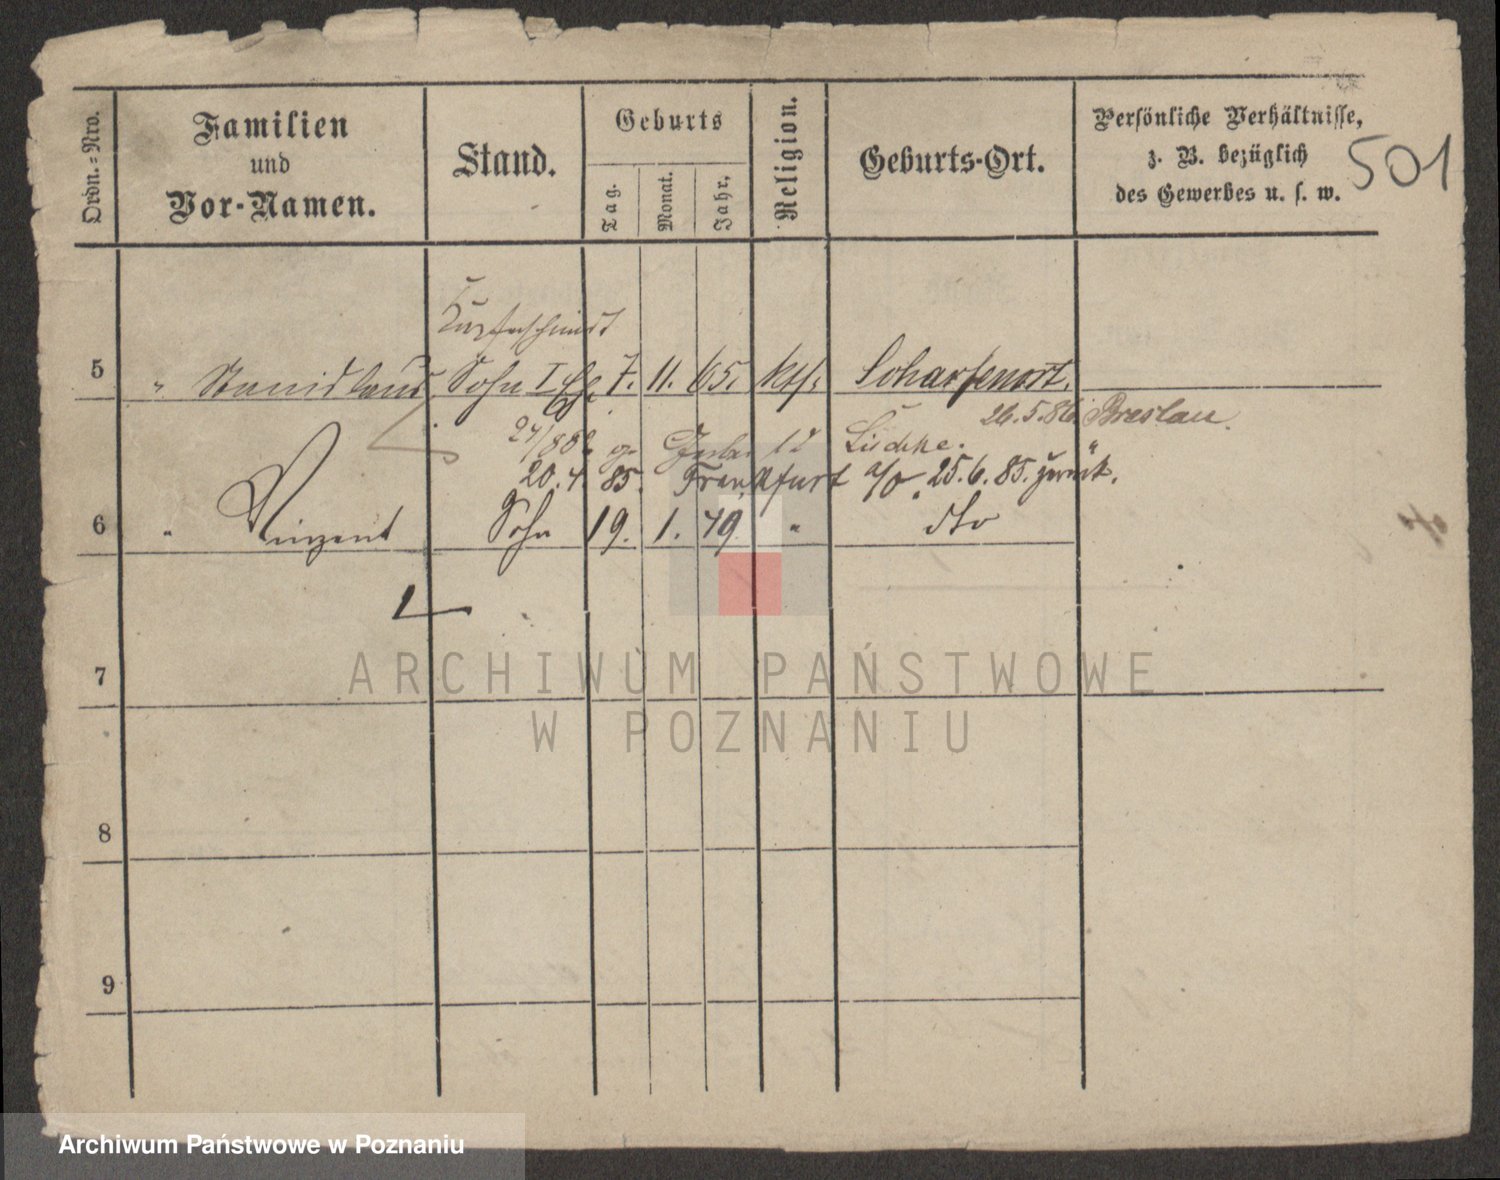 501
Ordn.=Nro.
Familien
und
Vor-Namen.
Stand.
Geburts
Tag.
Monat.
Jahr.
Religion.
Geburts-Ort.
Persönliche Verhältnisse,
z. B. bezüglich
des Gewerbes u. s. w.
5 " Stanislaus Sohn I Ehe 7. 11. 65. kth. Scharfenort.
26.5.86. Breslau.
20.4.85. Frankfurt a/O. 25.6.85. zurück.
6 " Vinzent Sohn 19. 1. 79. " dto
7
ARCHIWUM PAŃSTWOWE
W POZNANIU
8
9
Archiwum Państwowe w Poznaniu